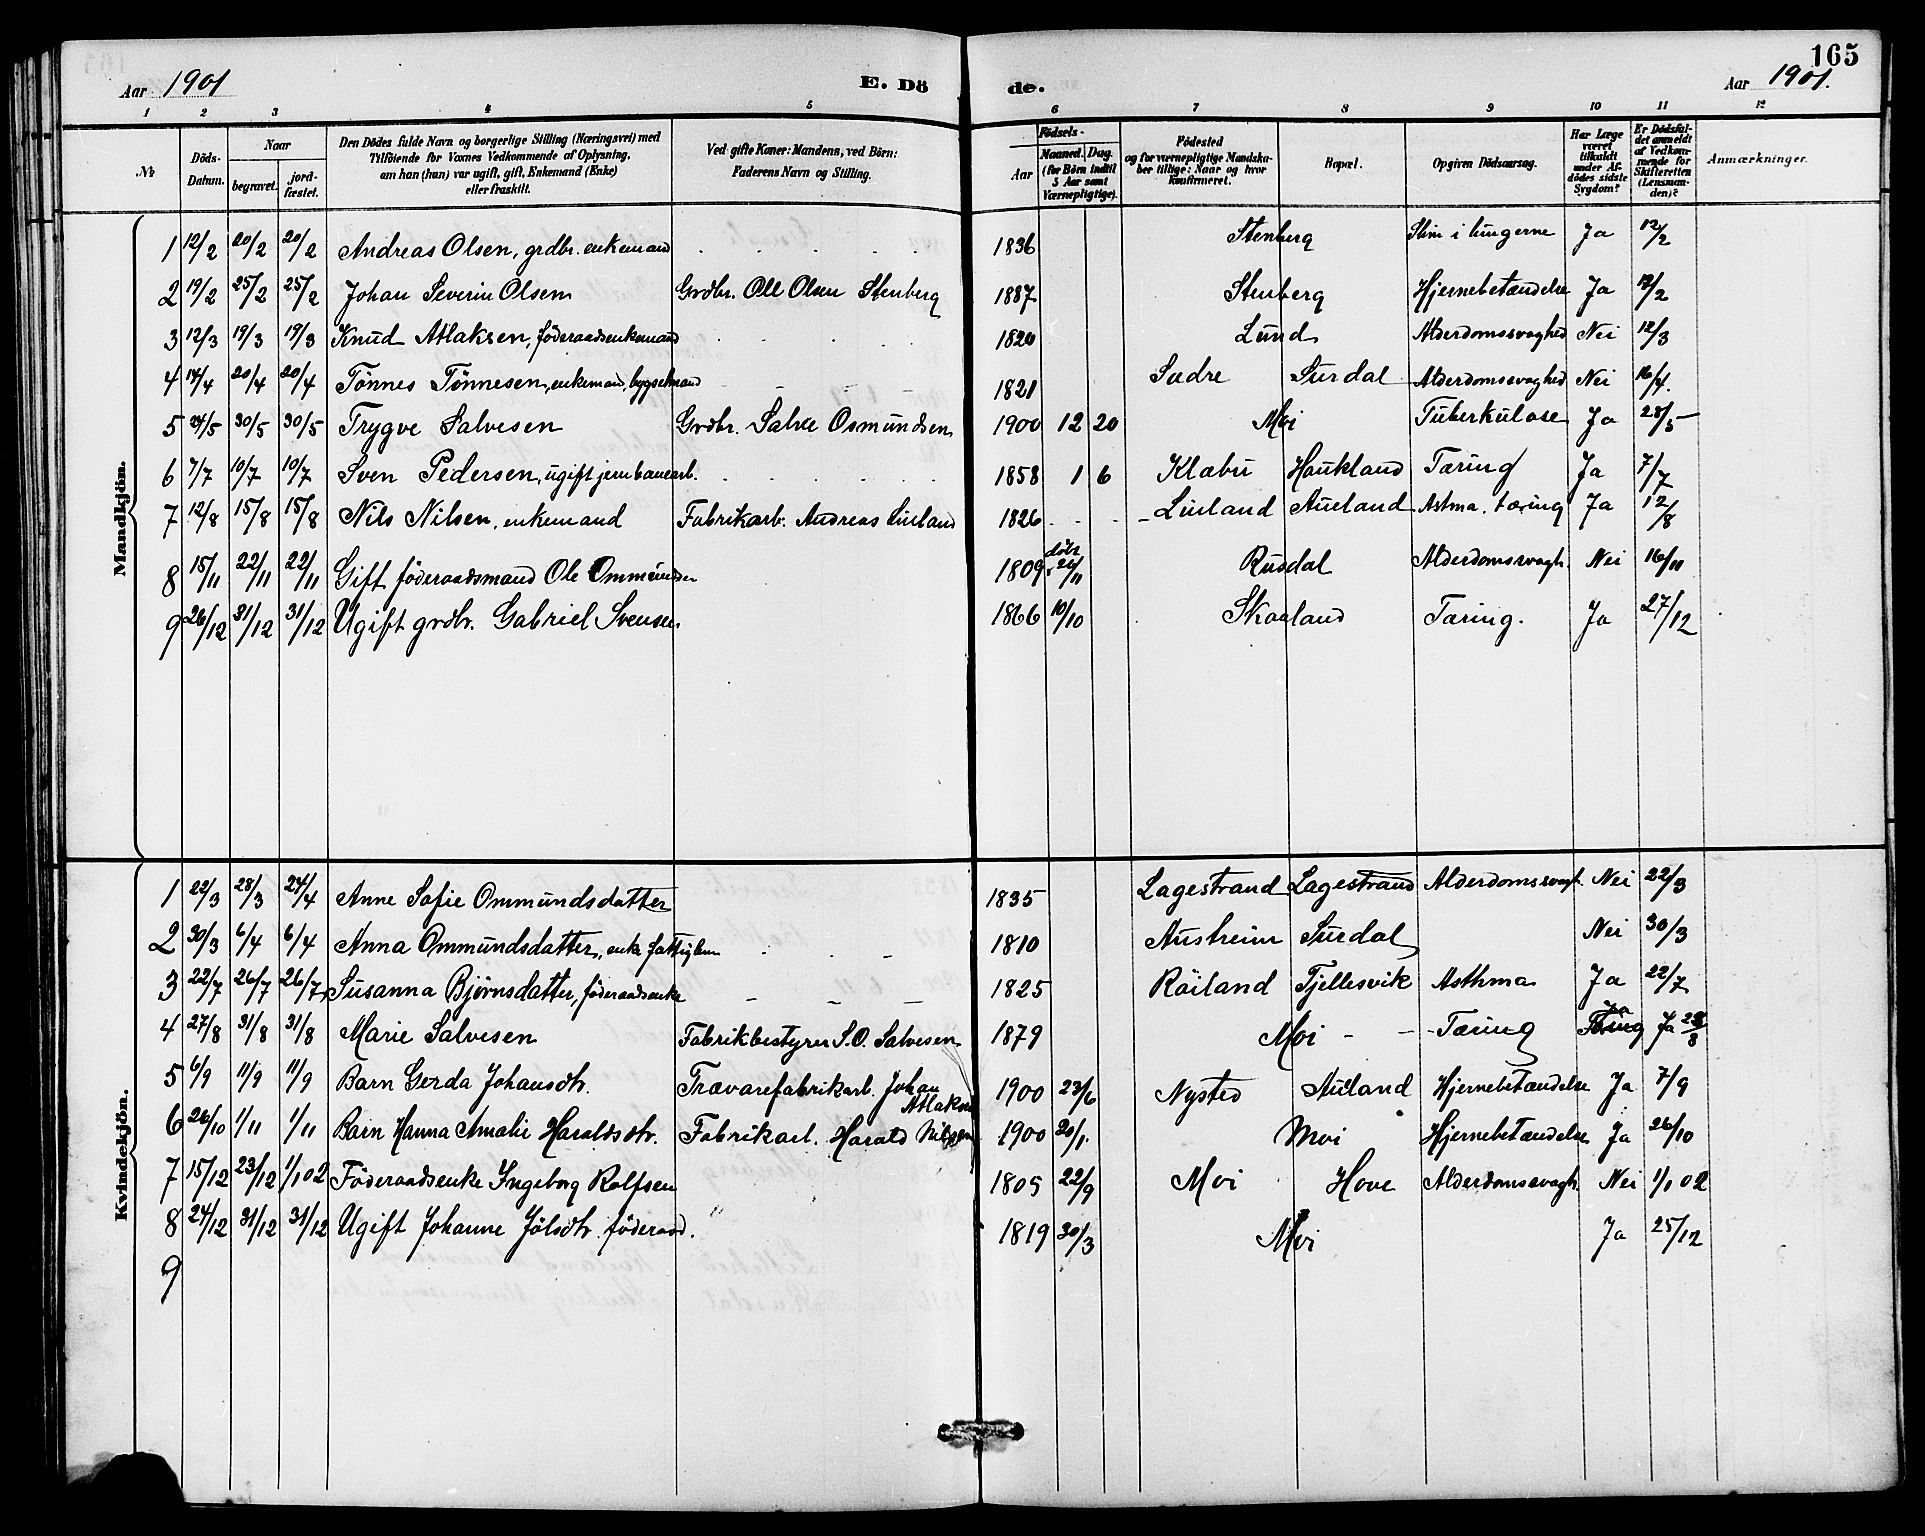 165
Aar 1901 E. Dö de. Aar 1901.
1 2 3 4 5 6 7 8 9 10 11 12
№ Döds-Datum. Naar begravet. jord-fæstet. Den Dödes fulde Navn og borgerlige Stilling (Næringsvei) med Tilföiende for Voxnes Vedkommende af Oplysning, om han (hun) var ugift, gift, Enkemand (Enke) eller fraskilt. Ved gifte Koner: Mandens, ved Börn: Faderens Navn og Stilling. Födsels- Aar Maaned. Dag. (for Börn indtil 5 Aar samt Værnepligtige). Födested og for værnepligtige Mandska-ber tillige: Naar og hvor konfirmeret. Bopæl. Opgiven Dödsaarsag. Har Læge været tilkaldt under Af-dödes sidste Sygdom? Er Dödsfal-det anmeldt af Vedkom-mende for Skifteretten (Lensman-den)? Anmærkninger.
Mandkjön.
1 12/2 20/2 20/2 Andreas Olsen, grdbr. enkemand 1836 Stenberg Slim i lungerne Ja 12/2
2 19/2 25/2 25/2 Johan Severin Olsen Grdbr. Ole Olsen Stenberg 1887 Stenberg Hjernebetændelse Ja 19/2
3 12/3 19/3 19/3 Knud Atlaksen, föderaadsenkemand 1820 Lund Alderdomssvaghed Nei 12/3
4 14/4 20/4 20/4 Tönnes Tönnesen, enkemand, bygselmand 1821 Sædre Surdal Alderdomssvaghed Nei 16/4.
5 24/5 30/5 30/5 Trygve Salvesen Grdbr. Salve Osmundsen 1900 12 20 Moi Tuberkulose Ja 28/5
6 7/7 10/7 10/7 Sven Pedersen, ugift jernbanearb. 1858 1 6 Klæbu Haukland Tæring Ja 7/7
7 12/8 15/8 15/8 Nils Nilsen, enkemand Fabrikarb. Andreas Linland 1826 Linland Aueland Astma. tæring Ja 12/8
8 15/11 22/11 22/11 Gift föderaadsmand Ole Ommundsen 1809 döbt 26/11 Rusdal Alderdomssvagh. Nei 16/11
9 26/12 31/12 31/12 Ugift grdbr. Gabriel Svensen. 1866 10/10 Skaaland Tæring. Ja 27/12
Kvindekjön.
1 22/3 28/3 24/4 Anne Sofie Ommundsdatter 1835 Lagestrand Lagestrand Alderdomssvagh. Nei 22/3
2 30/3 6/4 6/4 Anna Ommundsdatter, enke fattiglem 1810 Austreim Surdal Nei 30/3
3 22/7 26/7 26/7 Susanna Bjørnsdatter, föderaadsenke 1825 Röiland Tjellesvik Asthma Ja 22/7
4 27/8 31/8 31/8 Marie Salvesen Fabrikbestyrer S.O. Salvesen 1879 Moi - - Tæring Ja Ja 28/8
5 6/9 11/9 11/9 Barn Gerda Johansdtr. Trævarefabrikarb. Johan Atlaksen 1900 23/6 Nysted Aueland Hjernebetændelse Ja 7/9
6 26/10 1/11 1/11 Barn Hanna Amalie Haraldsdtr. Fabrikarb. Harald Nilssen 1900 20/1. Moi Hjernebetændelse Ja 26/10
7 15/12 23/12 1/1 02 Föderaadsenke Ingeborg Rolfsen 1805 22/9 Moi Hove Alderdomssvagh. Nei 1/1 02
8 24/12 31/12 31/12 Ugift Johanne Jölsdtr. föderaad. 1819 30/3 Moi Ja 25/12
9